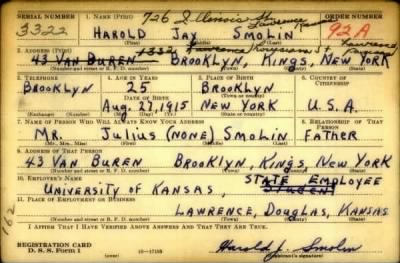 SERIAL NUMBER 1. NAME (Print) 726 Illinois St. Lawrence Kansas ORDER NUMBER
3322 HAROLD JAY SMOLIN 92A
(First) (Middle) (Last)
2. ADDRESS (Print) 1332 Lawrence
43 VAN BUREN BROOKLYN, KINGS, NEW YORK
(Number and street or R. F. D. number) (Town) (County) (State)
3. TELEPHONE 4. AGE IN YEARS 5. PLACE OF BIRTH 6. COUNTRY OF CITIZENSHIP
BROOKLYN 25 BROOKLYN
DATE OF BIRTH (Town or county)
AUG. 27, 1915 NEW YORK U.S.A.
(Exchange) (Number) (Mo.) (Day) (Yr.) (State or country)
7. NAME OF PERSON WHO WILL ALWAYS KNOW YOUR ADDRESS 8. RELATIONSHIP OF THAT PERSON
MR. JULIUS (NONE) SMOLIN FATHER
(Mr., Mrs., Miss) (First) (Middle) (Last)
9. ADDRESS OF THAT PERSON
43 VAN BUREN BROOKLYN, KINGS, NEW YORK
(Number and street or R. F. D. number) (Town) (County) (State)
10. EMPLOYER'S NAME STATE EMPLOYEE
UNIVERSITY OF KANSAS, (STUDENT)
11. PLACE OF EMPLOYMENT OR BUSINESS
LAWRENCE, DOUGLAS, KANSAS
(Number and street or R. F. D. number) (Town) (County) (State)
I AFFIRM THAT I HAVE VERIFIED ABOVE ANSWERS AND THAT THEY ARE TRUE.
REGISTRATION CARD
D. S. S. Form 1 16-17105 Harold J. Smolin
(Registrant's signature)
162